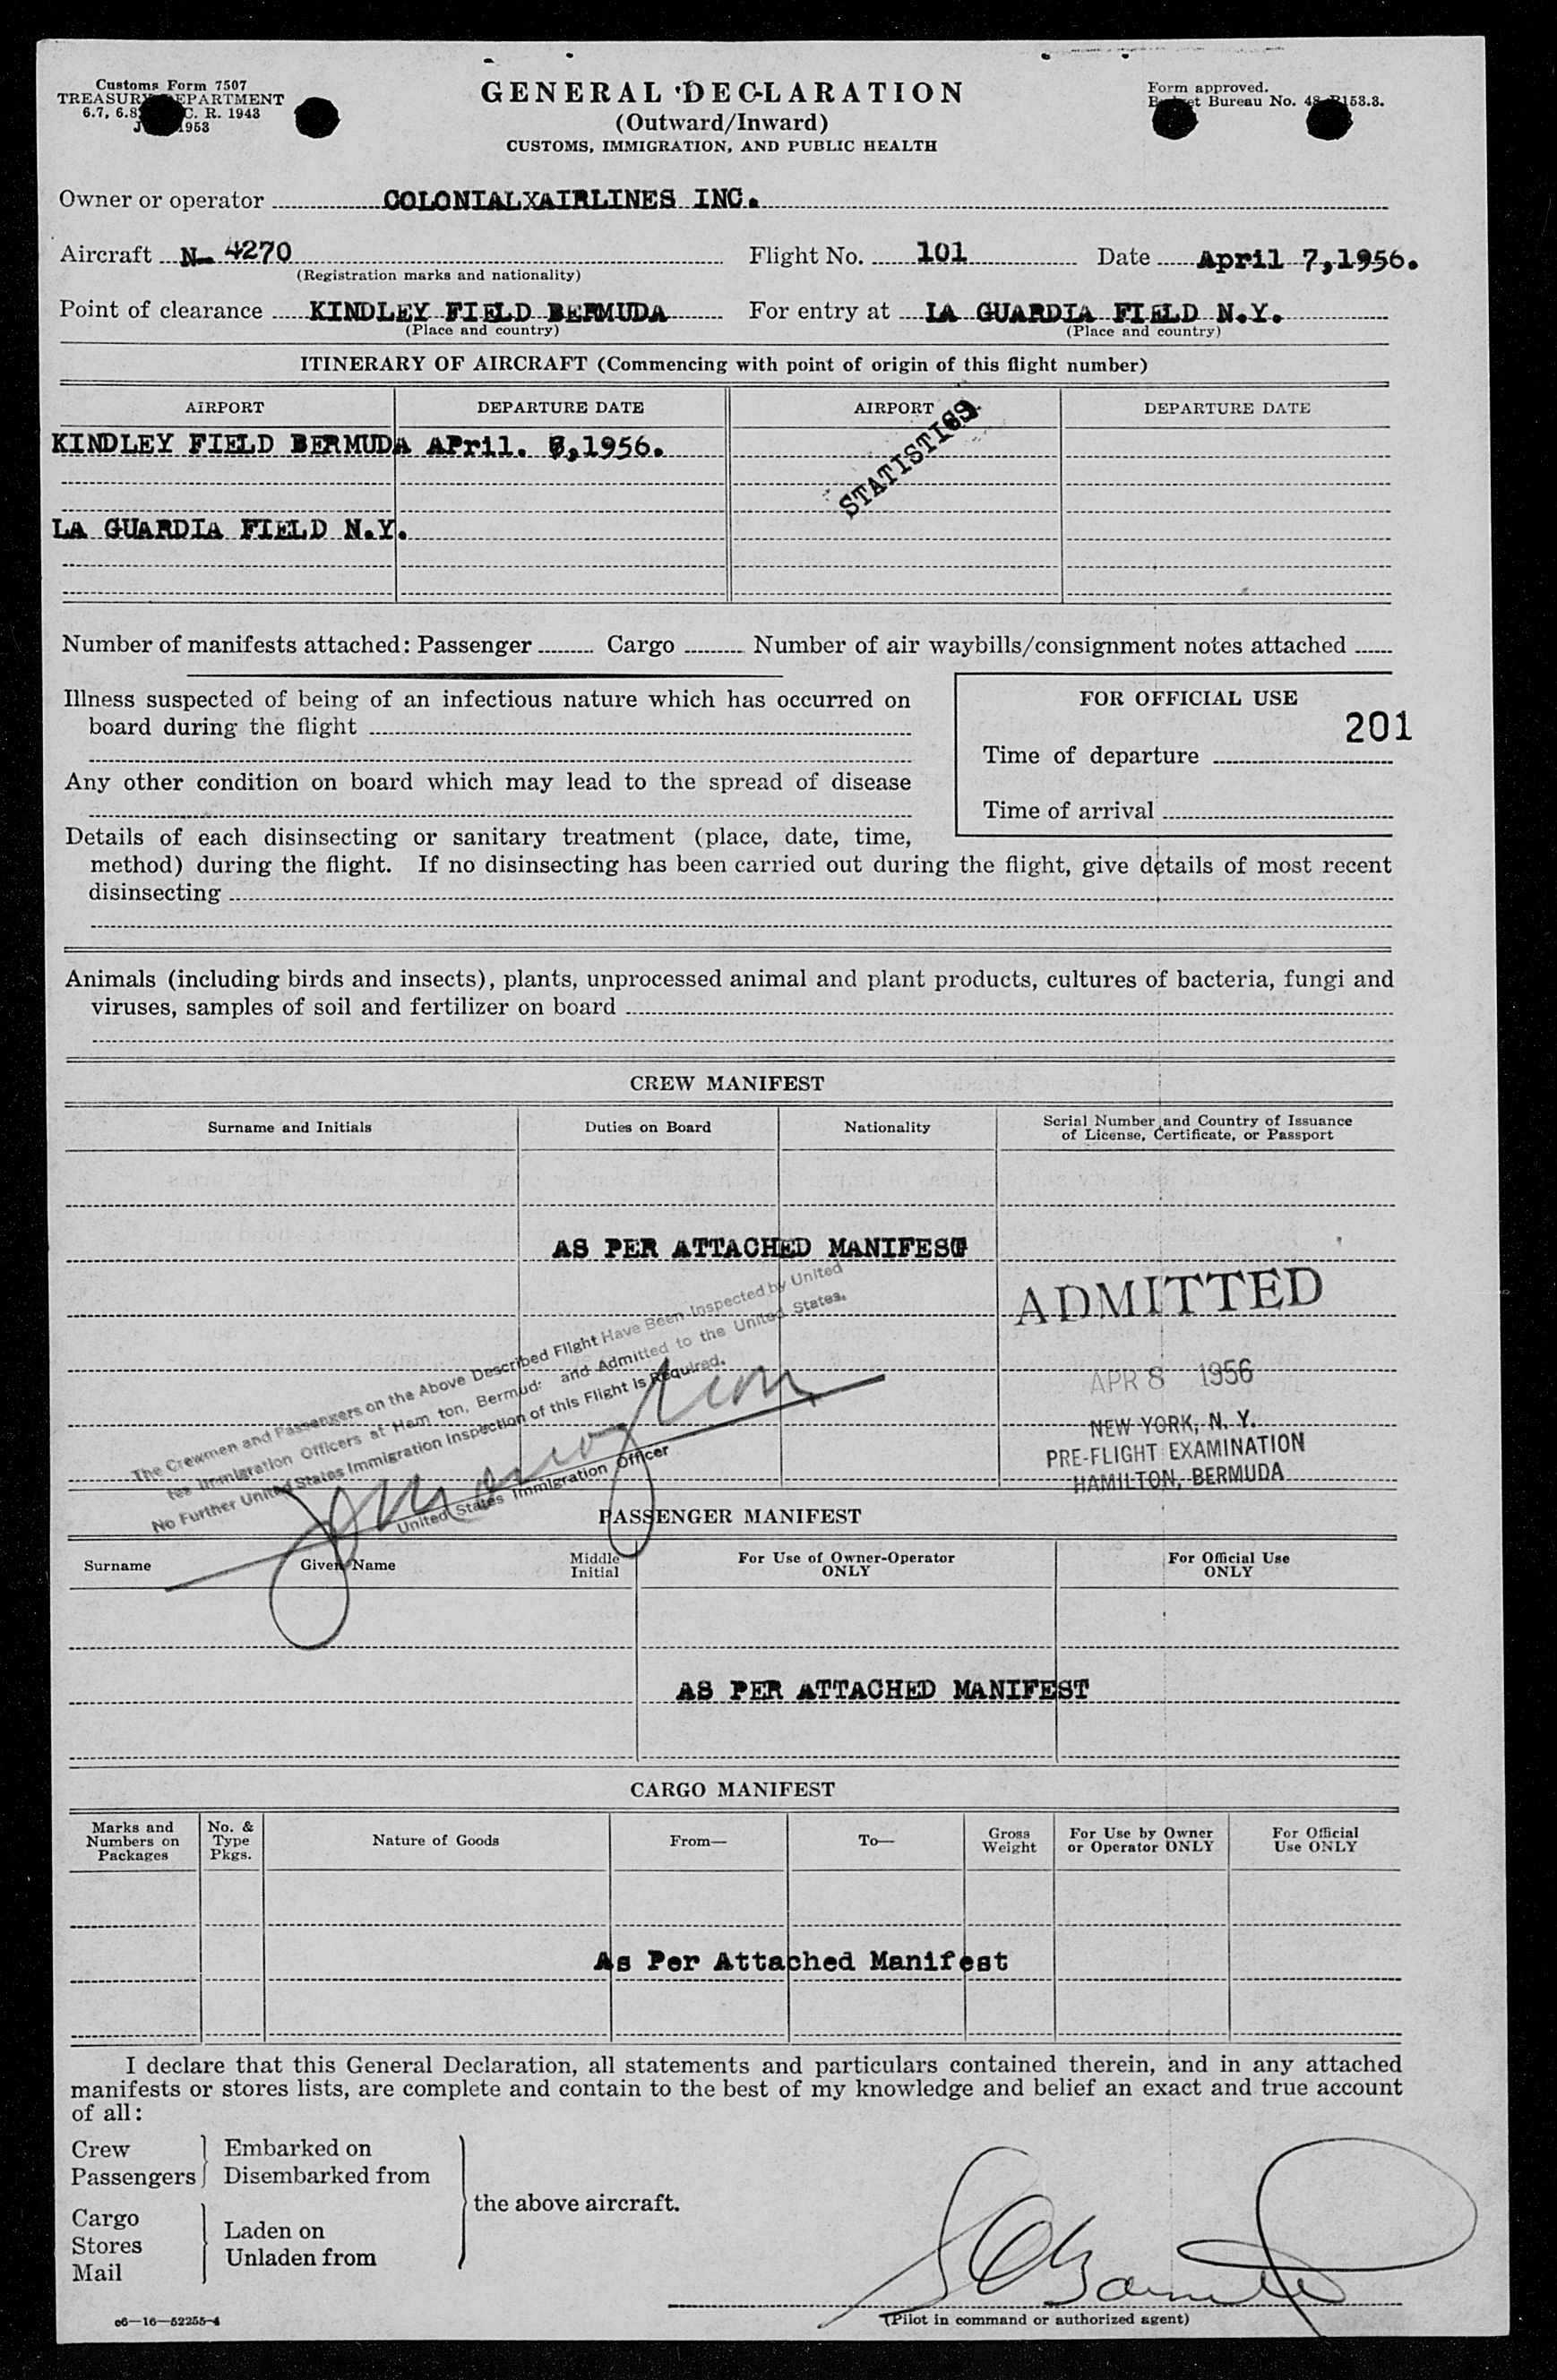 Customs Form 7507
TREASURY DEPARTMENT
6.7, 6.8, C. R. 1943
1953
GENERAL DECLARATION
(Outward/Inward)
CUSTOMS, IMMIGRATION, AND PUBLIC HEALTH
Form approved.
Budget Bureau No. 48-R153.3.
Owner or operator COLONIALXAIRLINES INC.
Aircraft N- 4270 Flight No. 101 Date April 7,1956.
(Registration marks and nationality)
Point of clearance KINDLEY FIELD BERMUDA For entry at LA GUARDIA FIELD N.Y.
(Place and country) (Place and country)
ITINERARY OF AIRCRAFT (Commencing with point of origin of this flight number)
AIRPORT DEPARTURE DATE AIRPORT DEPARTURE DATE
KINDLEY FIELD BERMUDA APril. ,1956.
STATISTICS
LA GUARDIA FIELD N.Y.
Number of manifests attached: Passenger Cargo Number of air waybills/consignment notes attached
Illness suspected of being of an infectious nature which has occurred on
board during the flight
Any other condition on board which may lead to the spread of disease
FOR OFFICIAL USE
201
Time of departure
Time of arrival
Details of each disinsecting or sanitary treatment (place, date, time,
method) during the flight. If no disinsecting has been carried out during the flight, give details of most recent
disinsecting
Animals (including birds and insects), plants, unprocessed animal and plant products, cultures of bacteria, fungi and
viruses, samples of soil and fertilizer on board
CREW MANIFEST
Surname and Initials Duties on Board Nationality Serial Number and Country of Issuance
of License, Certificate, or Passport
AS PER ATTACHED MANIFEST
ADMITTED
APR 8 1956
NEW YORK, N. Y.
PRE-FLIGHT EXAMINATION
HAMILTON, BERMUDA
The Crewmen and Passengers on the Above Described Flight Have Been Inspected by United
tes Immigration Officers at Ham ton, Bermud: and Admitted to the United States.
No Further United States Immigration Inspection of this Flight is Required.
United States Immigration Officer
PASSENGER MANIFEST
Surname Given Name Middle Initial For Use of Owner-Operator ONLY For Official Use ONLY
AS PER ATTACHED MANIFEST
CARGO MANIFEST
Marks and Numbers on Packages No. & Type Pkgs. Nature of Goods From— To— Gross Weight For Use by Owner or Operator ONLY For Official Use ONLY
As Per Attached Manifest
I declare that this General Declaration, all statements and particulars contained therein, and in any attached
manifests or stores lists, are complete and contain to the best of my knowledge and belief an exact and true account
of all:
Crew Embarked on
Passengers Disembarked from
the above aircraft.
Cargo
Stores Laden on
Mail Unladen from
(Pilot in command or authorized agent)
c6—16—52255-4